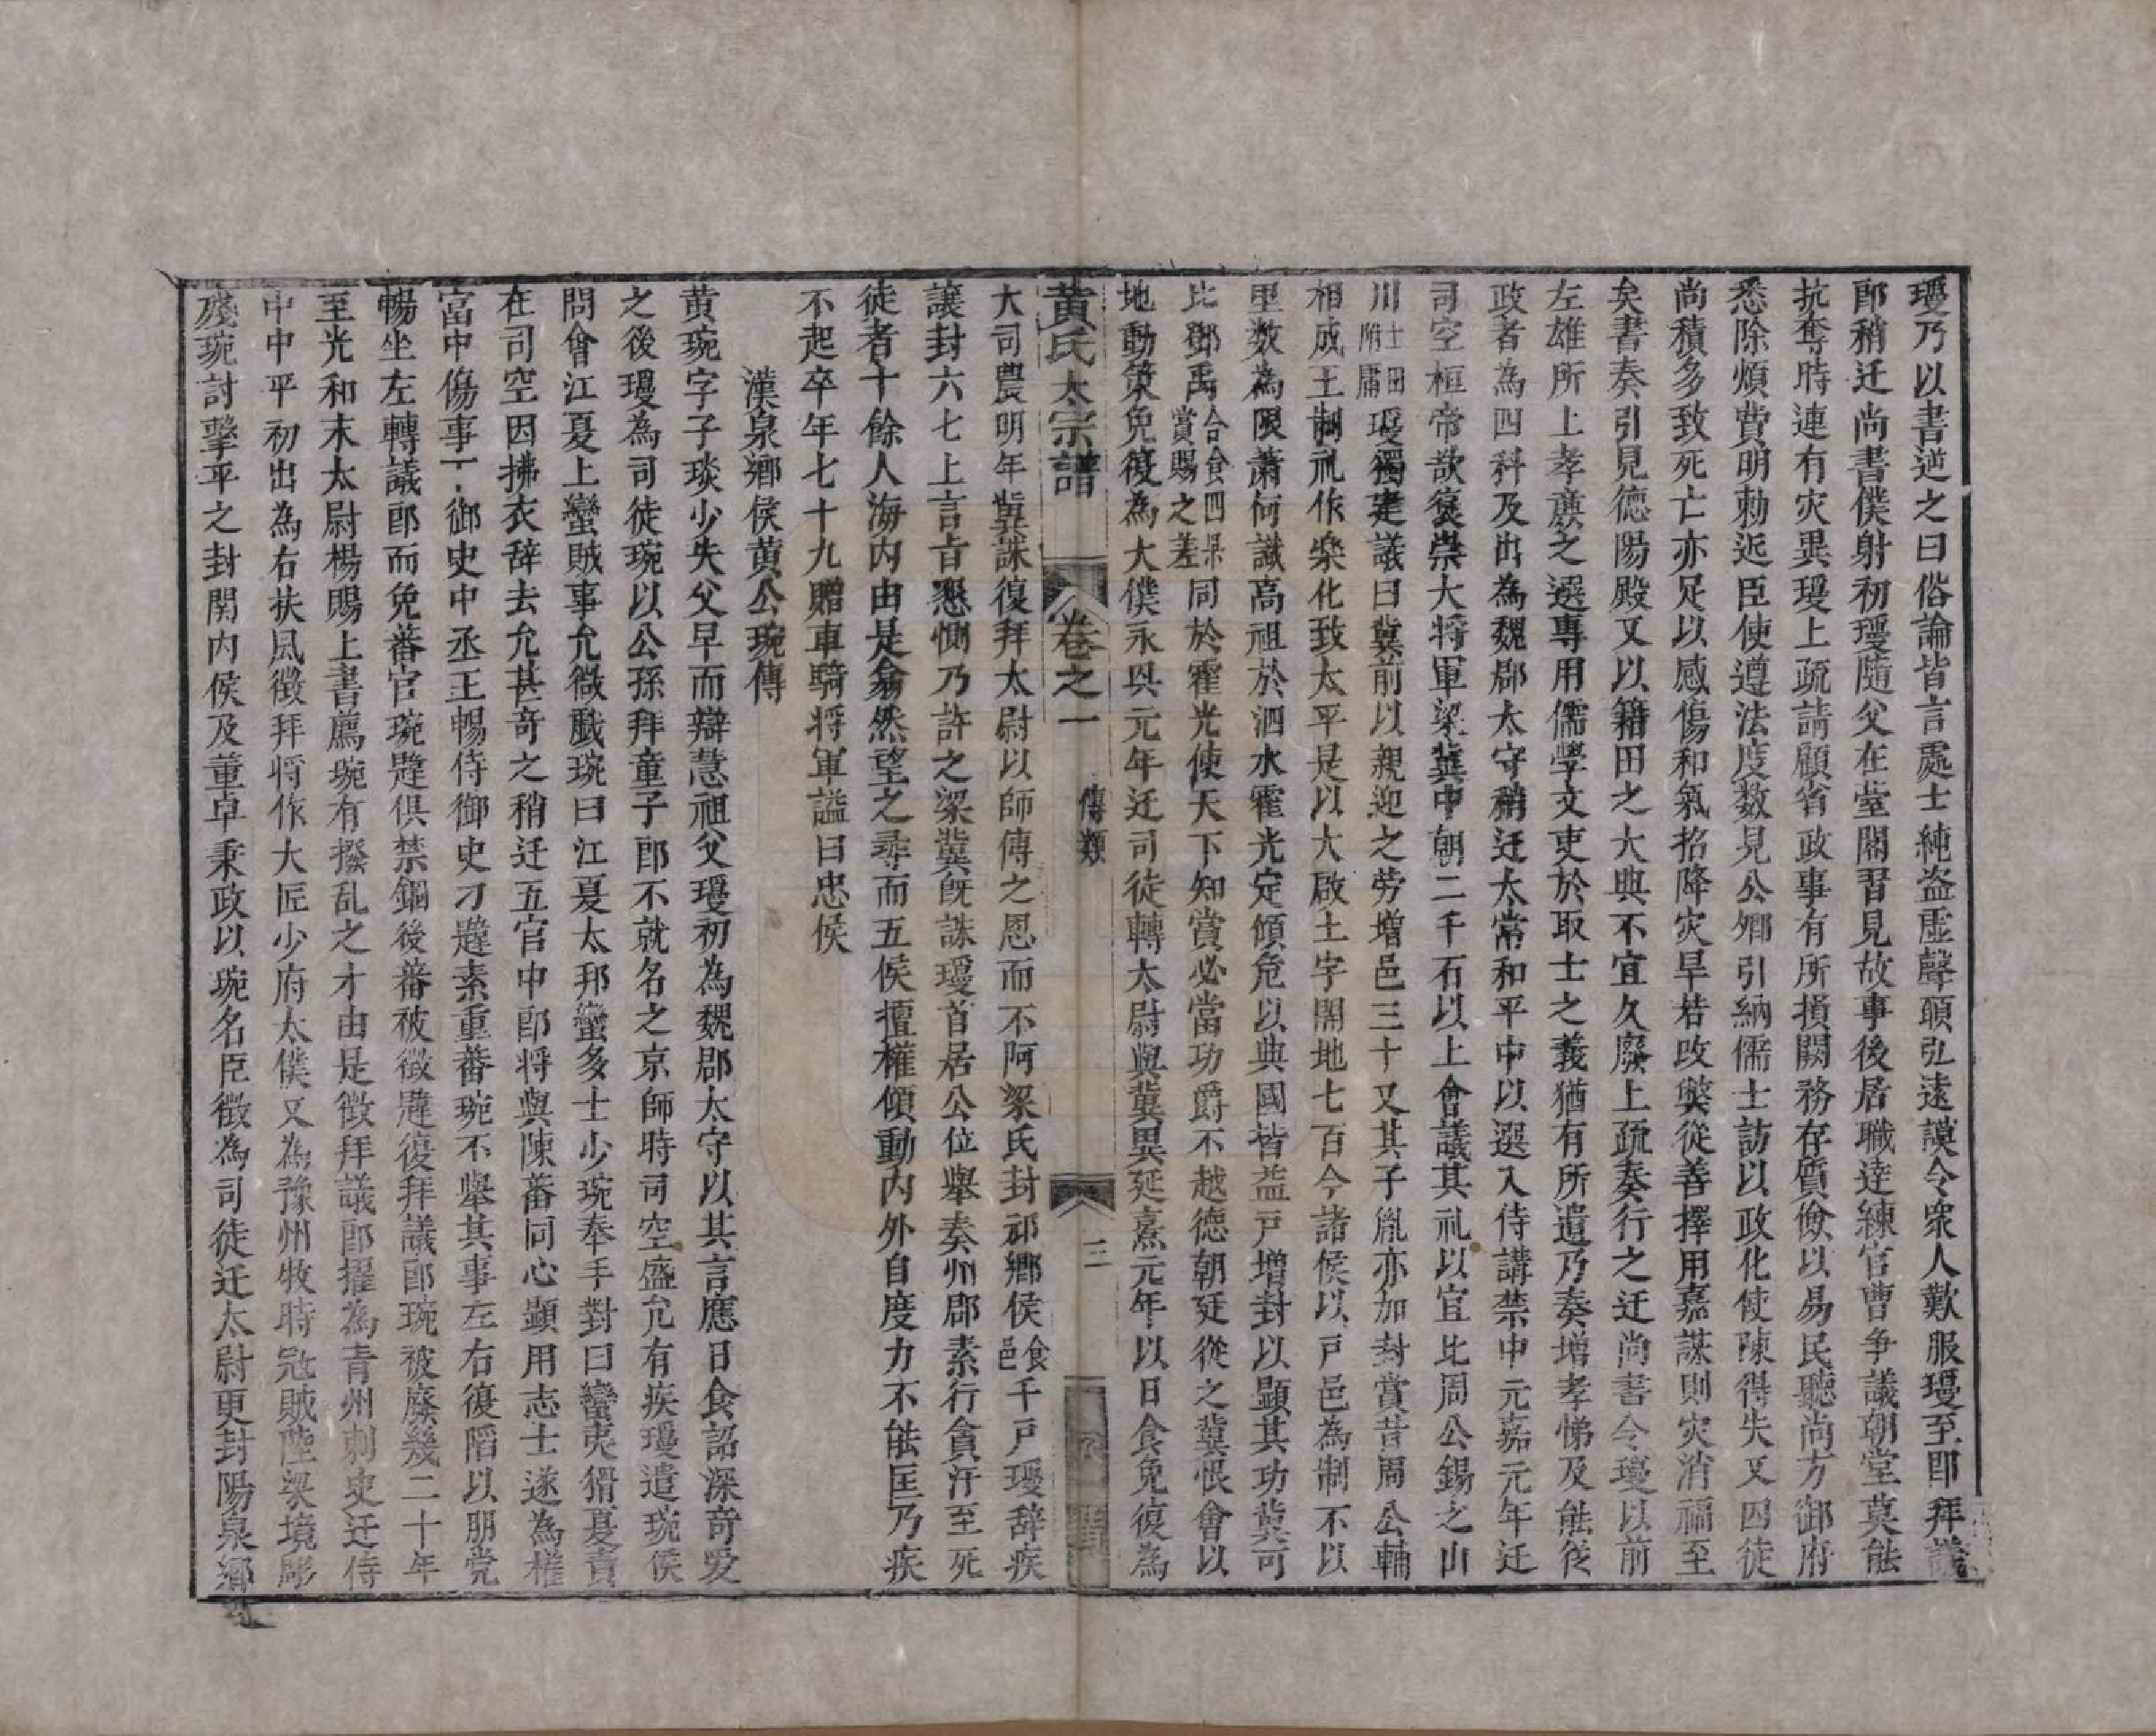 瓊乃以書逆之曰俗論皆言處士純盗虛聲願弘遠謨令衆人歎服瓊至即拜議
郎稍迁尚書僕射初瓊隨父在䑓閣習見故事後居職逹練官曹争議朝堂莫能
抗奪時連有灾異瓊上疏請顧省政事有所損闕務存質儉以易民聽尚方御府
悉除煩費明勅近臣使遵法度数見公卿引納儒士訪以政化使陳得失又囚徒
尚積多致死亡亦足以感傷和氣招降灾旱若改獘從善擇用嘉謀則灾消福至
矣書奏引見德陽殿又以籍田之大典不宜久廢上疏奏行之迁尚書令瓊以前
左雄所上孝廉之選專用儒學文吏於取士之義猶有所遺乃奏增孝悌及能従
政者為四科及出為魏郡太守稍迁太常和平中以選入侍講禁中元嘉元年迁
司空桓帝欲褒崇大将軍梁冀中朝二千石以上會議其礼以宜比周公錫之山
川士田附庸瓊獨建議曰冀前以親迎之劳增邑三十又其子胤亦加封賞昔周公輔
相成王制礼作楽化致太平是以大啟土宇開地七百今諸侯以户邑為制不以
里数為限蕭何識高祖於泗水霍光定傾危以興國皆益戸增封以顯其功冀可
比鄧禹合食四県賞賜之差同於霍光使天下知賞必當功爵不越德朝廷從之冀恨會以
地動策免復為大僕永興元年迁司徒轉太尉與冀異延熹元年以日食免復為
黄氏太宗譜
卷之一
傳類
三
大司農明年冀誅復拜太尉以師傅之恩而不阿梁氏封祁鄉侯食邑千戸瓊辞疾
讓封六七上言㫖懇惻乃許之梁冀旣誅瓊首居公位舉奏州郡素行貪汙至死
徒者十餘人海内由是翕然望之尋而五侯擅權傾動内外自度力不能匡乃疾
不起卒年七十九贈車騎将軍謚曰忠侯
漢泉鄉侯黄公琬傳
黄琬字子琰少失父早而辯慧祖父瓊初為魏郡太守以其言應日食詔深奇爱
之後瓊為司徒琬以公孫拜童子郎不就名之京師時司空盛允有疾瓊遣琬侯
問會江夏上蠻賊事允㣲戯琬曰江夏太邦蠻多士少琬奉手對曰蠻夷猾夏責
在司空因拂衣辞去允甚奇之稍迁五官中郎将與陳蕃同心顯用志士遂為權
富中傷事下御史中丞王暢侍御史刁韙素重蕃琬不舉其事左右復䧟以朋党
暢坐左轉議郎而免蕃官琬韙俱禁錮後蕃被徴韙復拜議郎琬被廢幾二十年
至光和末太尉楊賜上書薦琬有撥乱之才由是徴拜議郎擢為青州刺史迁侍
中中平初出為右扶風徴拜将作大匠少府太僕又為豫州牧時冦賊陸梁境彫
殘琬討擊平之封関内侯及董卓秉政以琬名臣徴為司徒迁太尉更封陽泉鄉